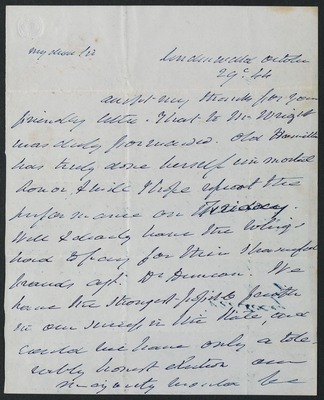 my dear Sir
Lindenwald October
29th 44
accept my thanks for your
friendly letter. That to Mr Wright
was duly forwarded. Old Hamilton
has truly done herself immortal
honor, & will I hope repeat the
performance on
Well & dearly have the Whigs
had to pay for their shameful
frauds agt. Dr Duncan. We
have the strongest faith
in our success in this State, and
could we have only a tole-
rably honest election our
majority would be